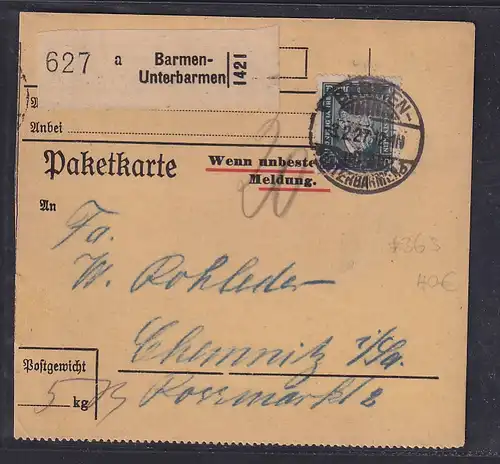 627 a Barmen-
Unterbarmen
1421
A
Anbei
BARMEN-
2.27
UNTERBARMEN
Paketkarte
Wenn unbeste
Meldung.
20
An
Fa.
W. Rohleder
Chemnitz i/Sa.
Rossmarkt 2
363
40€
Postgewicht
5
kg